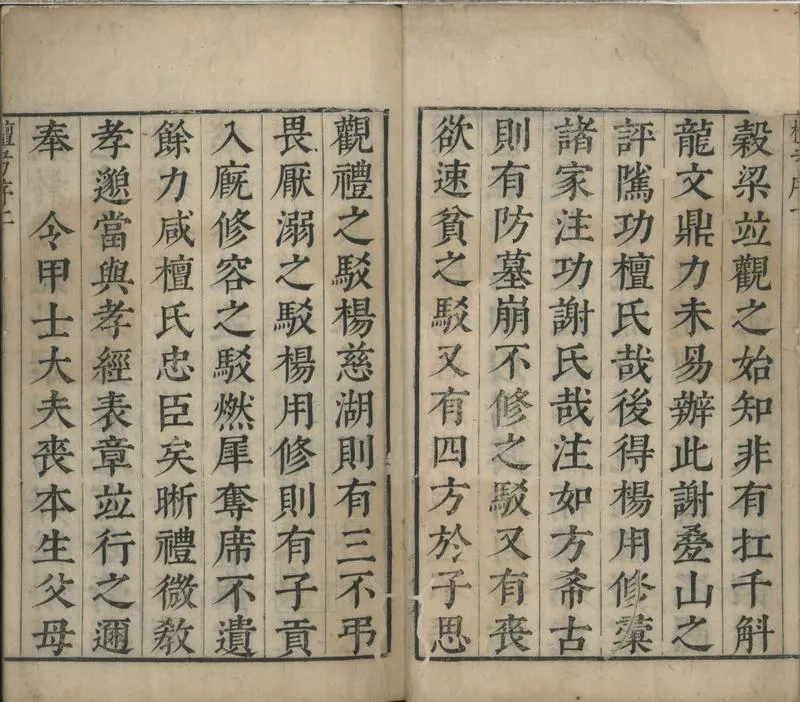 穀梁竝觀之始知非有扛千斛
龍文鼎力未易辦此謝疊山之
評隲功檀氏哉後得楊用修藁
諸家注功謝氏哉注如方希古
則有防墓崩不修之駁又有喪
欲速貧之駁又有四方於子思
觀禮之駁楊慈湖則有三不弔
畏厭溺之駁楊用修則有子貢
入廐修容之駁燃犀奪席不遺
餘力咸檀氏忠臣矣晰禮微敎
孝邈當與孝經表章竝行之邇
奉　令甲士大夫喪本生父母
檀弓序二